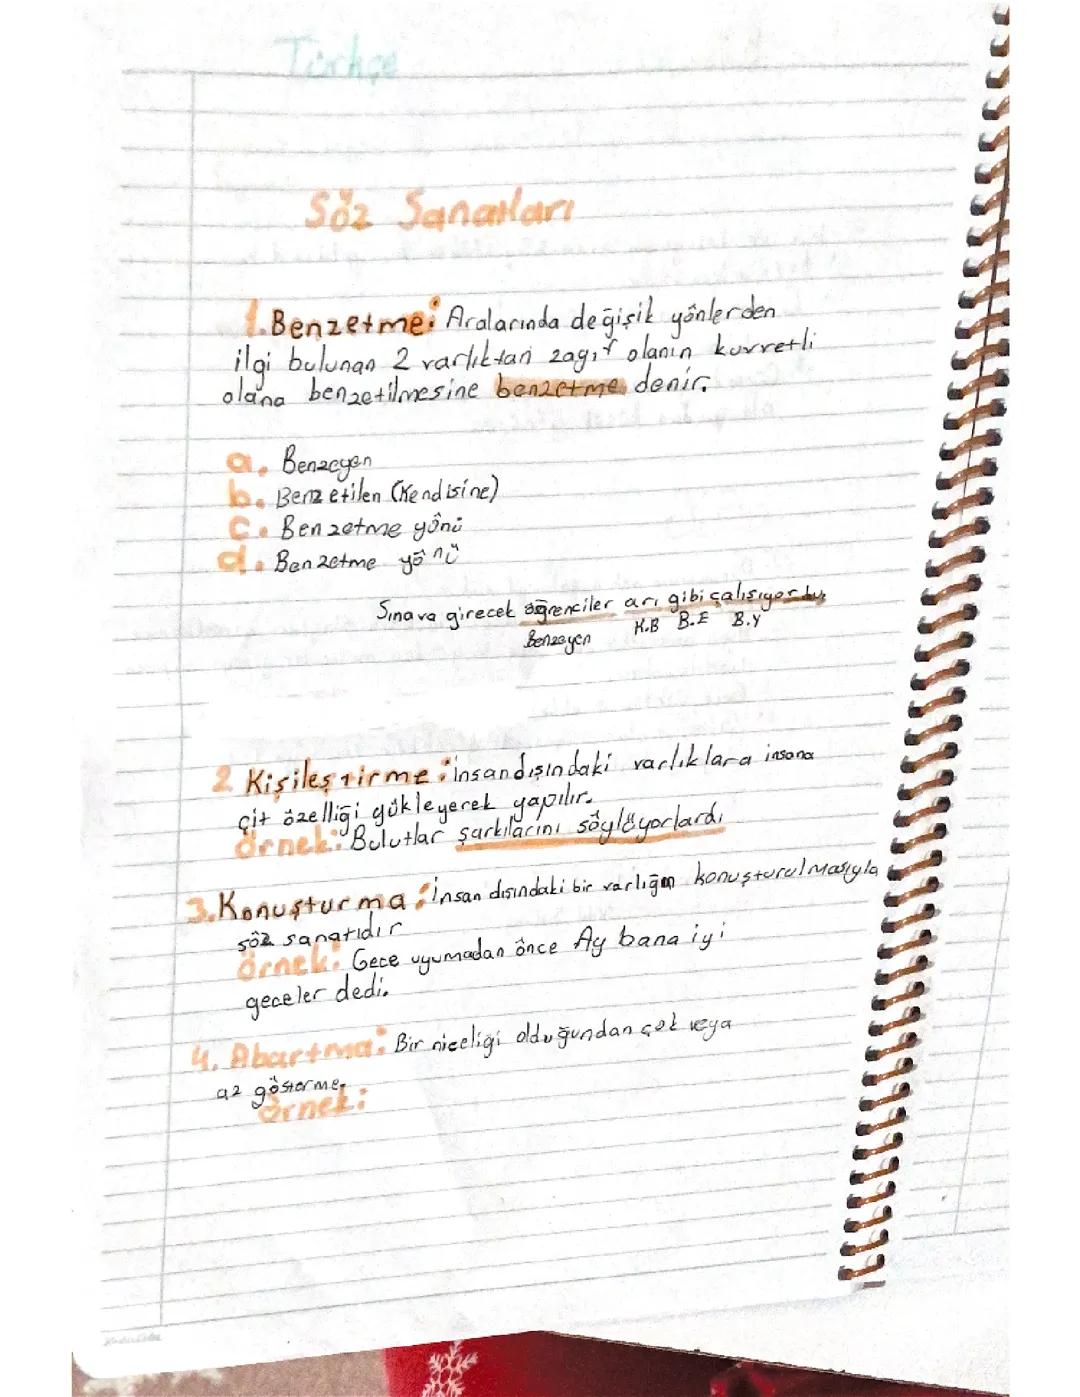 Türkçe
Söz Sanatları
1. Benzetme: Aralarında değişik yönlerden
ilgi bulunan 2 varlıktan zayıf olanın kuvvetli
olana benzetilmesine benzetme denir.
a. Benzeyen
b. Benzetilen (Kendisine)
c. Benzetme yönü
d. Benzetme yönü
Sınava girecek öğrenciler arı gibi çalışıyordu.
Benzeyen K.B B.E B.Y
2 Kişileştirme: İnsandışındaki varlıklara insana
çit özelliği yükleyerek yapılır.
Örnek: Bulutlar şarkılarını söylüyorlardı
3. Konuşturma: İnsan dışındaki bir varlığın konuşturulmasıyla
söz sanatıdır
Örnek: Gece uyumadan önce Ay bana iyi
geceler dedi.
4. Abartma: Bir niceliği olduğundan çok veya
az gösterme.
Örnek: